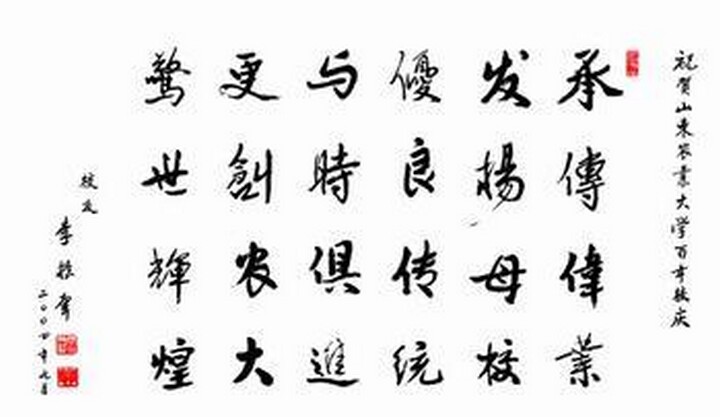 祝賀山東农業大学百年校庆
承傳偉業
发楊母校
優良传统
与時俱進
更創农大
驚世輝煌
校友
李
二〇〇
年九月